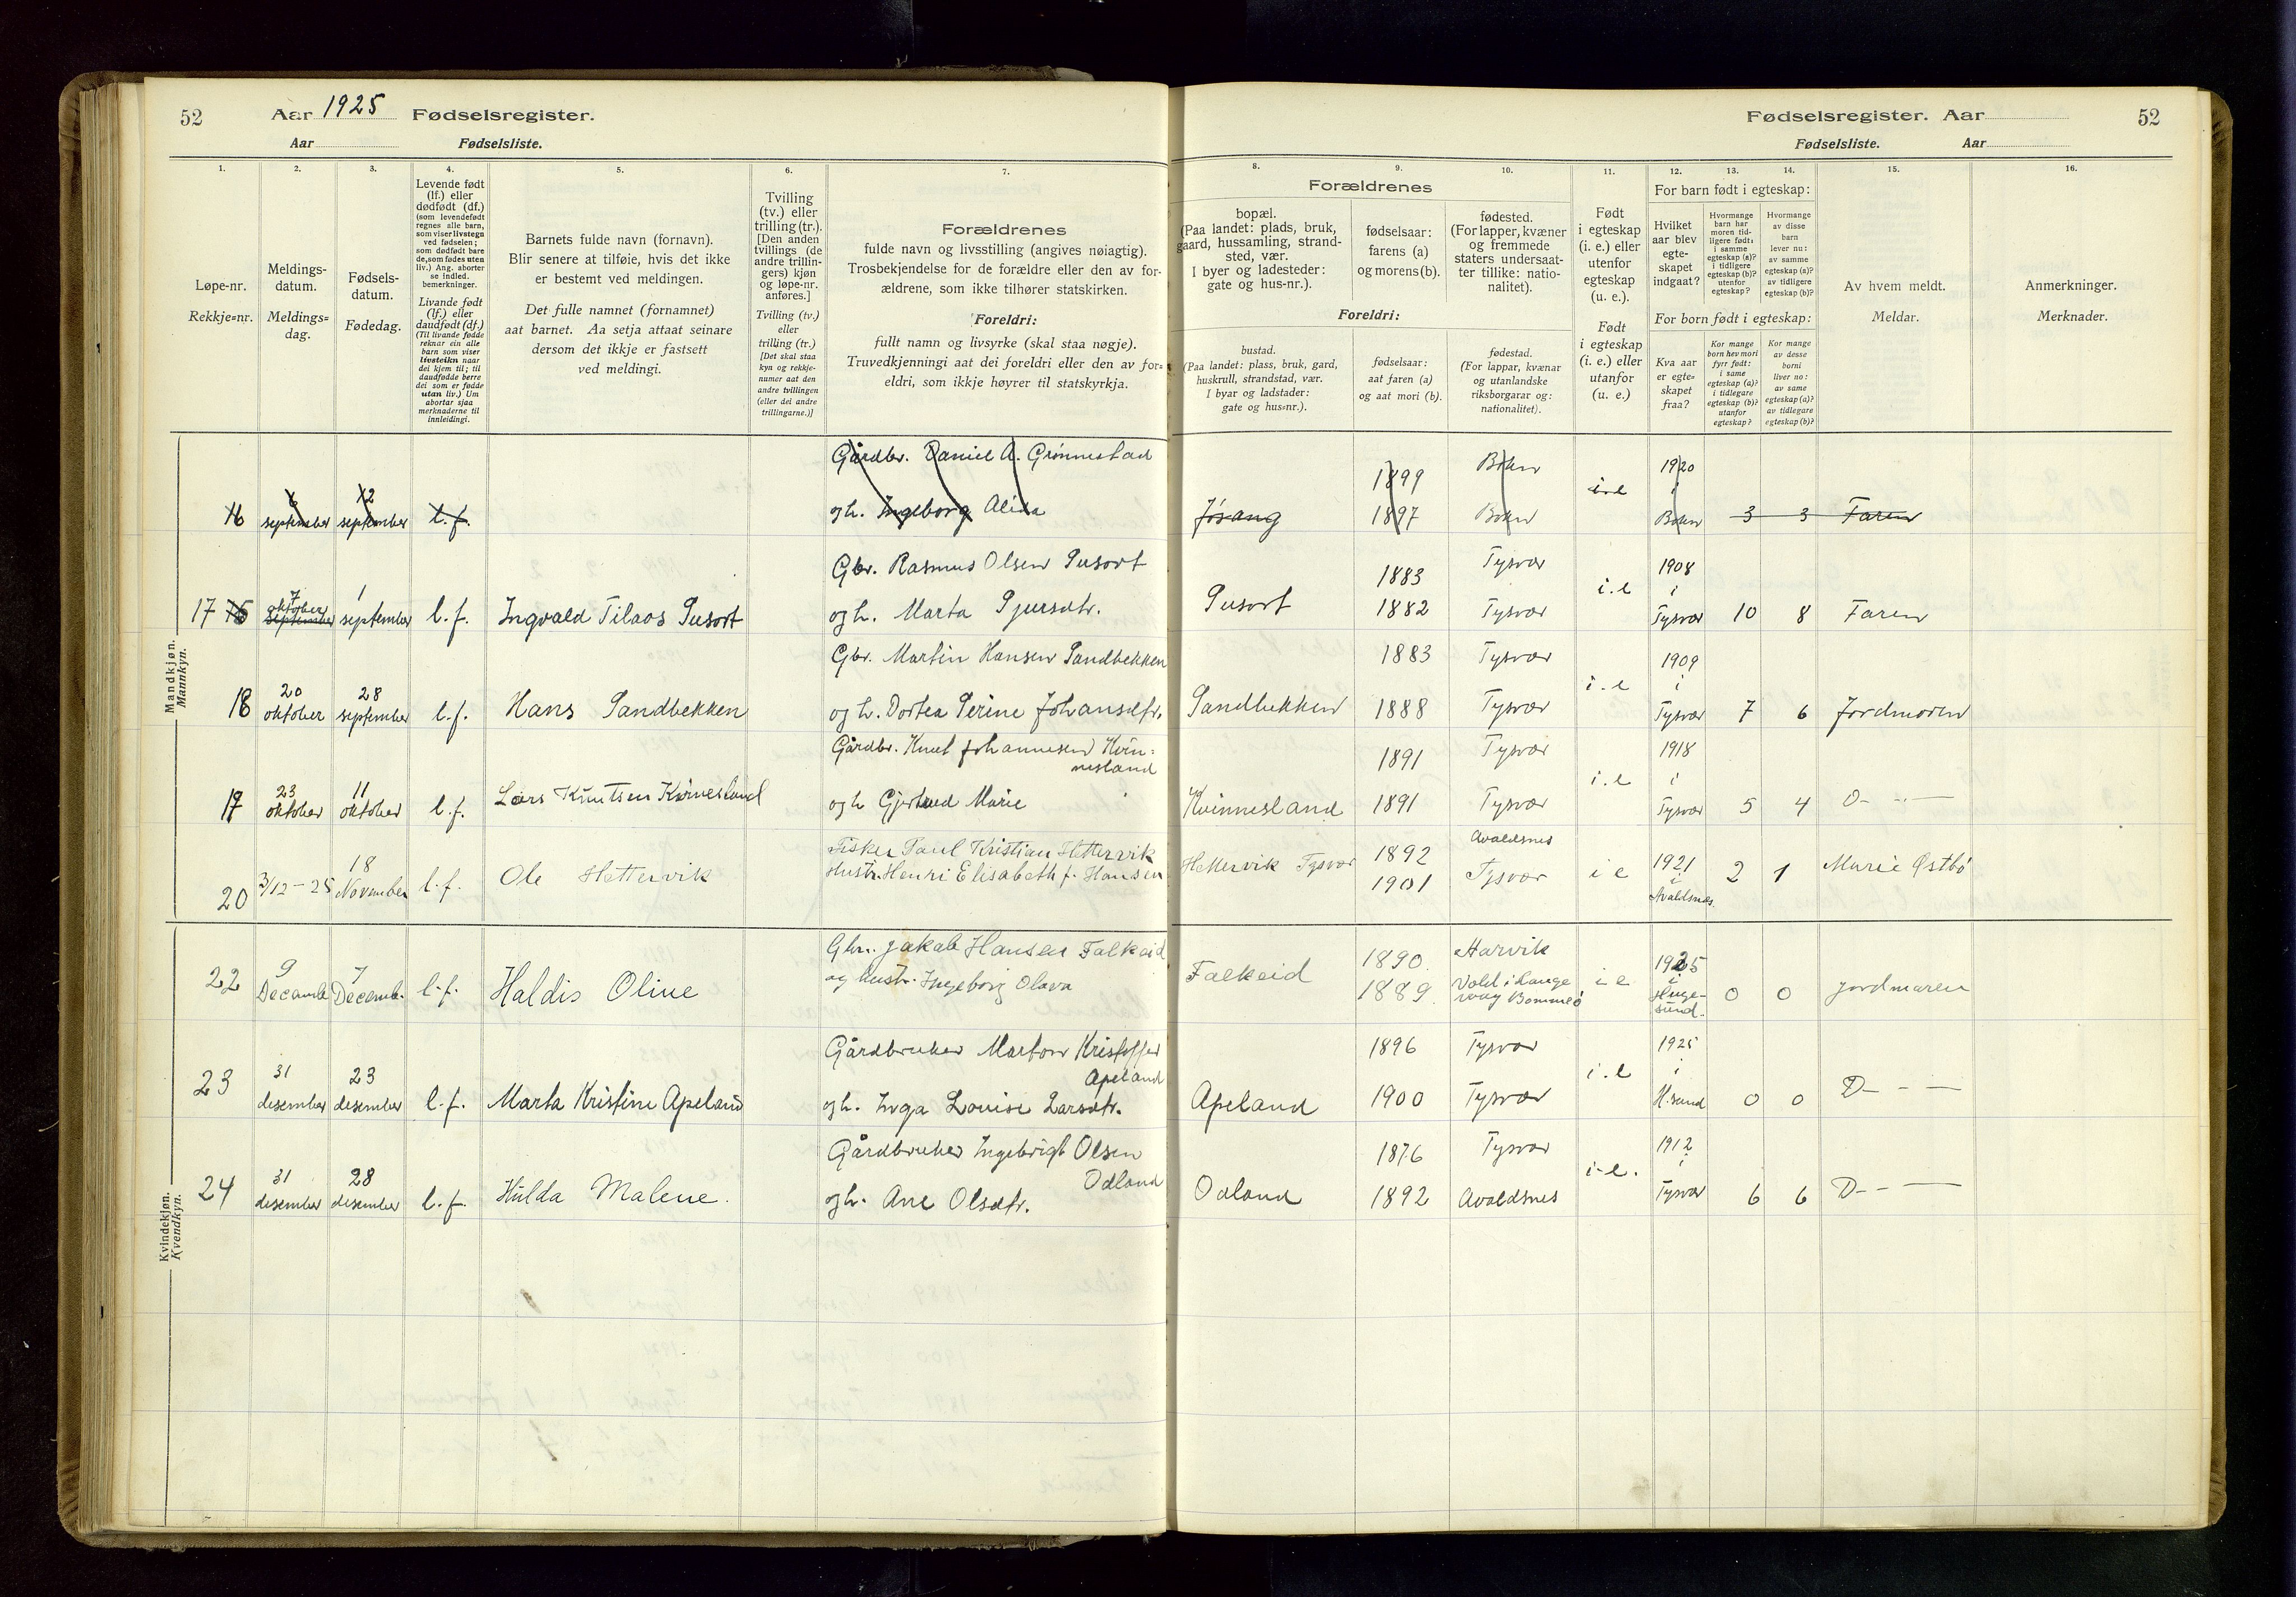 52 Aar 1925 Fødselsregister.
Aar Fødselsliste.
Fødselsregister. Aar 52
Fødselsliste. Aar
1. 2. 3. 4. 5. 6. 7.
Løpe-nr.
Rekkje=nr.
Meldings-
datum.
Meldings=
dag.
Fødsels-
datum.
Fødedag.
Levende født
(lf.) eller
dødfødt (df.)
(som levendefødt
regnes alle barn,
som viser livstegn
ved fødselen;
som dødfødt bare
de, som fødes uten
liv.) Ang. aborter
se indled.
bemerkninger.
Livande født
(lf.) eller
daudfødt (df.)
(Til livande fødde
reknar ein alle
barn som viser
livsteikn naar
dei kjem til; til
daudfødde berre
dei som er fødde
utan liv.) Um
abortar sjaa
merknaderne til
innleidingi.
Barnets fulde navn (fornavn).
Blir senere at tilføie, hvis det ikke
er bestemt ved meldingen.
Det fulle namnet (fornamnet)
aat barnet. Aa setja attaat seinare
dersom det ikkje er fastsett
ved meldingi.
Tvilling
(tv.) eller
trilling (tr.).
[Den anden
tvillings (de
andre trillin-
gers) kjøn
og løpe-nr.
anføres.]
Tvilling (tv.)
eller
trilling (tr.)
[Det skal staa
kyn og rekkje-
numer aat den
andre tvillingen
(eller dei andre
trillingarne.)]
Forældrenes
fulde navn og livsstilling (angives nøiagtig).
Trosbekjendelse for de forældre eller den av for-
ældrene, som ikke tilhører statskirken.
Foreldri:
fullt namn og livsyrke (skal staa nøgje).
Truvedkjenningi aat dei foreldri eller den av for=
eldri, som ikkje høyrer til statskyrkja.
8. 9. 10. 11. 12. 13. 14. 15. 16.
Forældrenes
bopæl.
(Paa landet: plads, bruk,
gaard, hussamling, strand-
sted, vær.
I byer og ladesteder:
gate og hus-nr.).
fødselsaar:
farens (a)
og morens (b).
fødested.
(For lapper, kvæner
og fremmede
staters undersaat-
ter tillike: natio-
nalitet).
Foreldri:
bustad.
(Paa landet: plass, bruk, gard,
huskrull, strandstad, vær.
I byar og ladstader:
gate og hus=nr.).
fødselsaar:
aat faren (a)
og aat mori (b).
fødestad.
(For lappar, kvænar
og utanlandske
riksborgarar og:
nationalitet).
Født
i egteskap
(i. e.) eller
utenfor
egteskap
(u. e.).
Født
i egteskap
(i. e.) eller
utanfor
(u. e.)
For barn født i egteskap:
Hvilket
aar blev
egte-
skapet
indgaat?
Hvormange
barn har
moren tid-
ligere født:
i samme
egteskap (a)?
i tidligere
egteskap (b)?
utenfor
egteskap?
Hvormange
av disse
barn
lever nu:
av samme
egteskap (a)?
av tidligere
egteskap (b)?
For born født i egteskap:
Kva aar
er egte-
skapet
fraa?
Kor mange
born hev mori
fyrr født:
i same
egteskap (a)?
i tidlegare
egteskap (b)?
utanfor
egteskap?
Kor mange
av desse
borni
liver no:
av same
egteskap (a)?
av tidlegare
egteskap (b)?
Av hvem meldt.
Meldar.
Anmerkninger.
Merknader.
Mandkjøn.
Mannkyn.
Gårdbr. Daniel A. Grønnestad 1899 Bokn 1920
16 september 12 september l.f. og h. Ingeborg Alida Jøsang 1897 Bokn i.e i Bokn 3 3 Faren
Gbr. Rasmus Olsen Susort 1883 Tysvær 1908
17 7 oktober 1 september l.f. Ingvald Tilaos Susort og h. Marta Sjursdtr. Susort 1882 Tysvær i.e i Tysvær 10 8 Faren
Gbr. Martin Hansen Sandbekken 1883 Tysvær 1909
18 20 oktober 28 september l.f. Hans Sandbekken og h. Dortea Serine Johansdtr. Sandbekken 1888 Tysvær i.e i Tysvær 7 6 Jordmoren
Gårdbr. Knut Johannesen Kvin-
nesland 1891 Tysvær 1918
19 23 oktober 11 oktober l.f. Lars Knutsen Kvinesland og h Gjertrud Marie Kvinnesland 1891 Tysvær i.e i Tysvær 5 4 D- -"-
Fisker Paul Kristian Hettervik 1892 Avaldsnes
20 3/12-25 18 November l.f. Ole Hettervik Hustr. Henri Elisabeth f. Hansen Hettervik Tysvær 1901 Tysvær i e 1921 i Avaldsnes. 2 1 Marie Østbø
Kvindekjøn.
Kvendkyn.
Gbr. Jakob Hansen Falkeid 1890. Harvik
22 9 Decembe 7 Decemb. l.f. Haldis Oline og hustr. Ingeborg Olava Falkeid 1889. Vold i Lange
våg Bømmelø i e 1925 i Huge-
sund. 0 0 Jordmoren
Gårdbruker Marton Kristoffer
Apeland 1896 Tysvær 1925
23 31 desember 23 desember l.f. Marta Kristine Apeland og h. Inga Louise Larsdtr. Apeland 1900 Tysvær i.e i H.sund 0 0 D- - -
Gårdbruker Ingebrigt Olsen
Odland 1876 Tysvær 1912
24 31 desember 28 desember l.f. Hulda Malene. og h. Ane Olsdtr. Odland 1892 Avaldsnes i-e. i Tysvær 6 6 D- - -